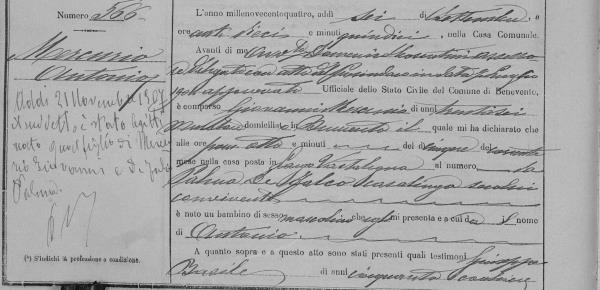 Numero 566
Mercurio
Antonio
Addì 21 Novembre 1907
il suddetto è stato legitti
mato qual figlio di Mercu
rio Giovanni e di
Palma.
(*) S'indichi la professione o condizione.
L'anno millenovecentoquattro, addì sei di Settembre, a
ore anti dieci e minuti quindici, nella Casa Comunale.
Avanti di me Domenico assessore
delegato con atto del Sindaco in data
1904 approvato Ufficiale dello Stato Civile del Comune di Benevento,
è comparso Giovanni Mercurio di anni trentasei
domiciliato in Benevento il quale mi ha dichiarato che
alle ore pom. otto e minuti — del dì cinque del corrente
mese nella casa posta in al numero, da
Palma De Falco casalinga secolui
convivente
è nato un bambino di sesso mascolino che egli mi presenta e a cui dà il nome
di Antonio
A quanto sopra e a questo atto sono stati presenti quali testimoni Giuseppe
Basile di anni cinquanta